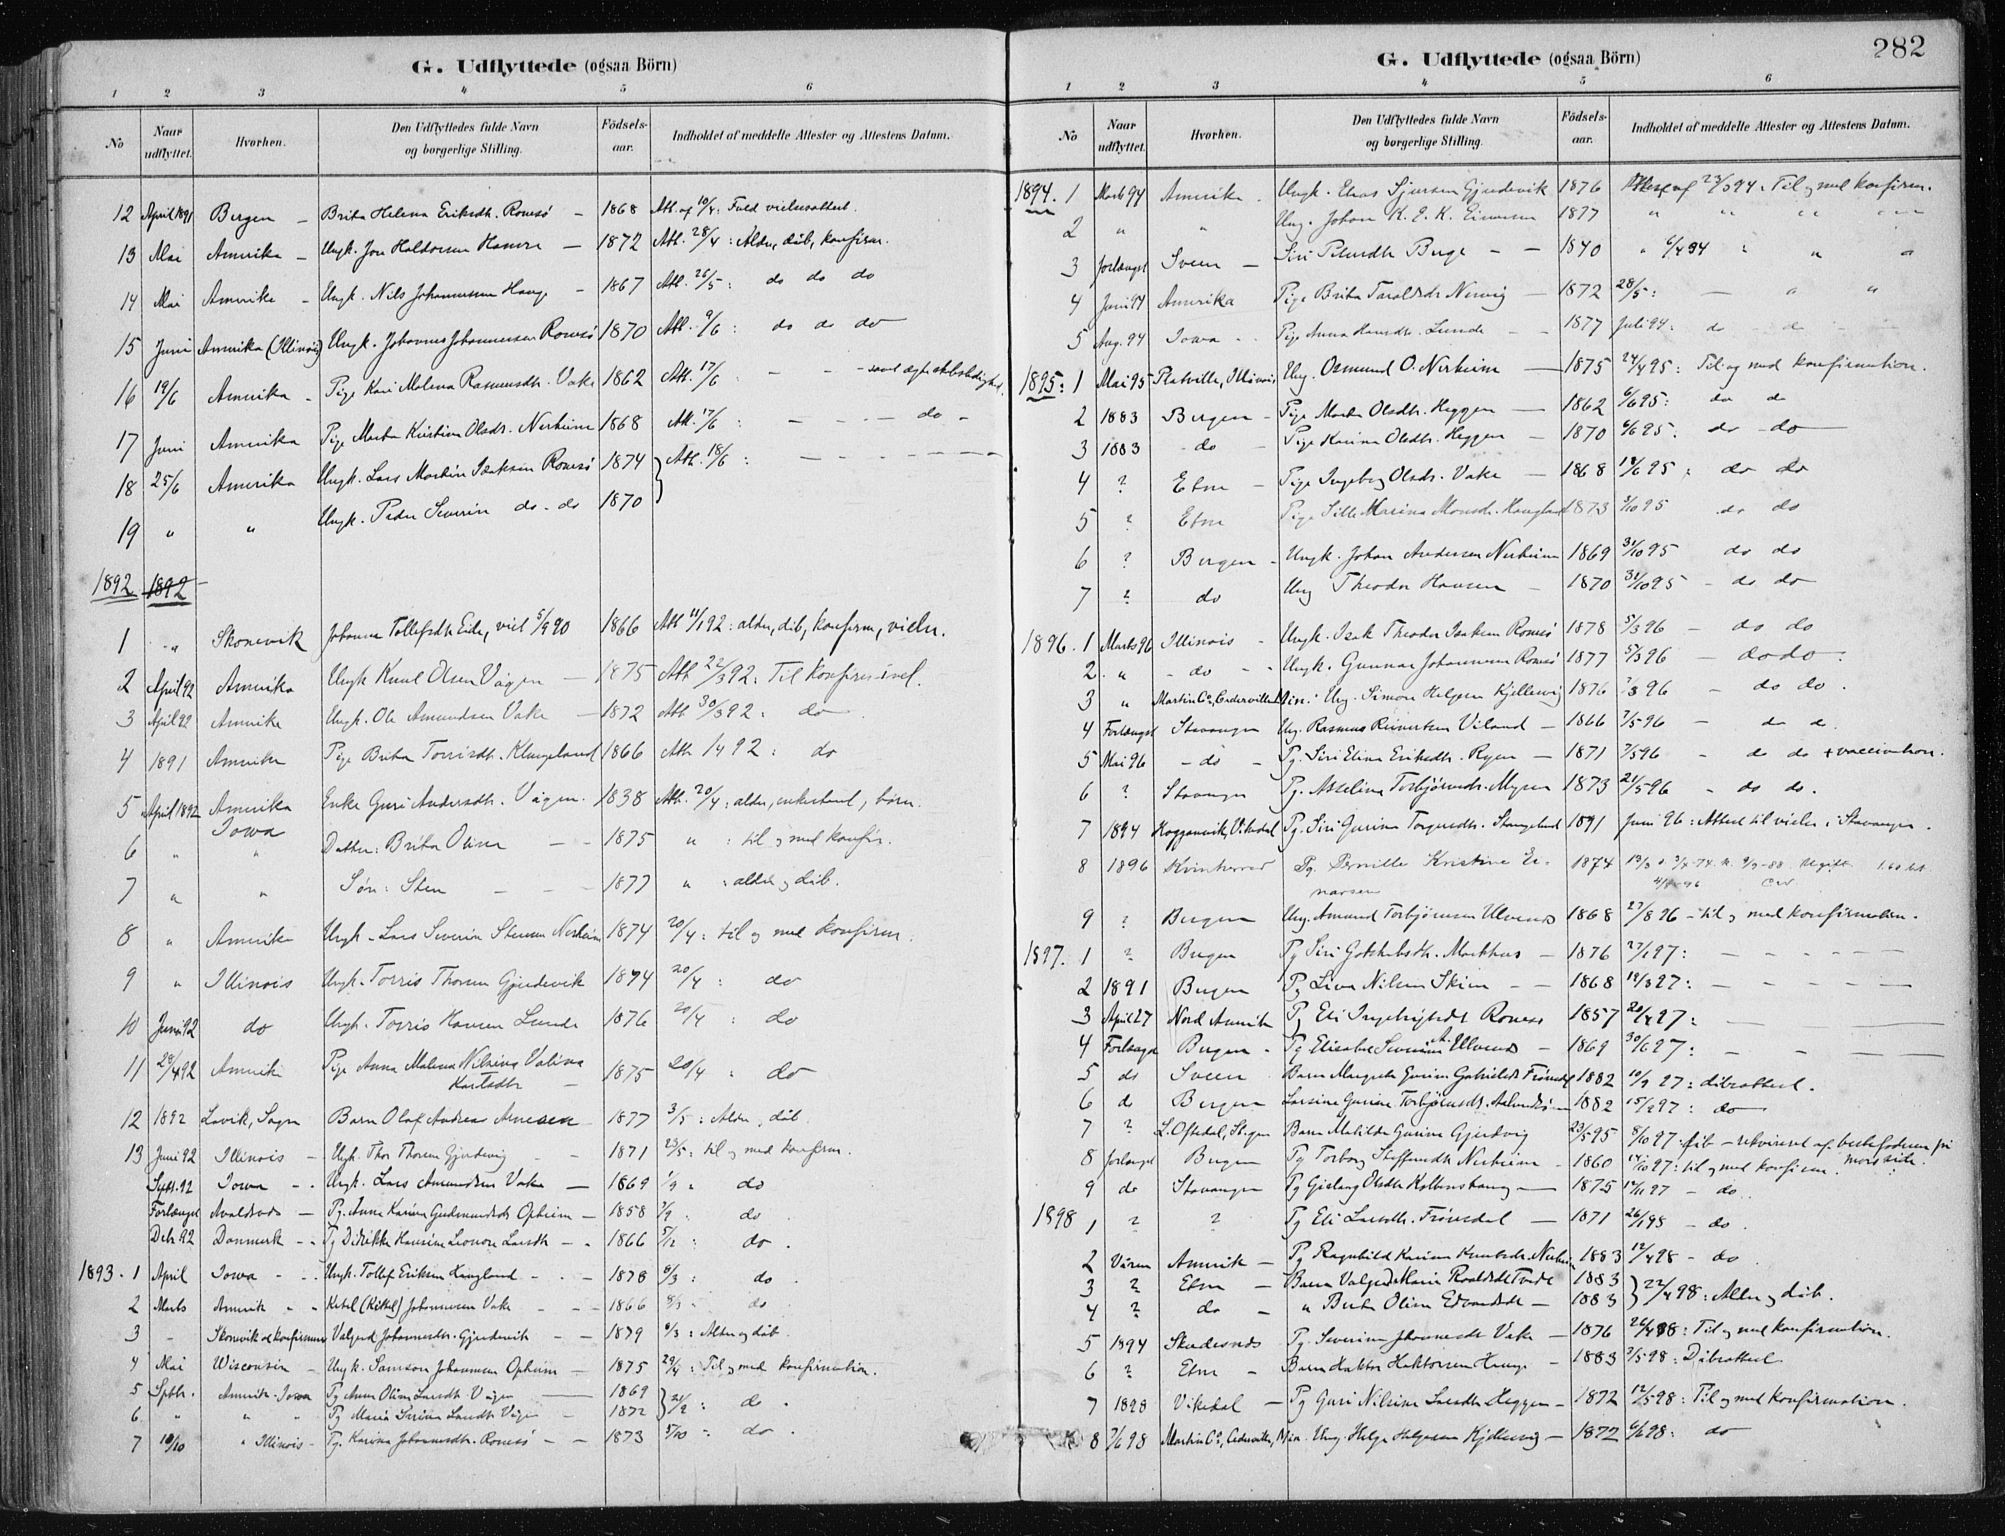 G. Udflyttede (ogsaa Börn)
1 2 3 4 5 6
No Naar udflyttet. Hvorhen. Den Udflyttedes fulde Navn og borgerlige Stilling. Födsels-aar. Indholdet af meddelte Attester og Attestens Datum.
12 April 1891 Bergen – Brita Helena Eriksdtr. Romsö – 1868 Att. af 10/4: Fuld vielsesattest.
13 Mai Amerika – Ungk. Jon Haldorsen Hamre – 1872 Att. 28/4: Alder, dåb, konfirm.
14 Mai Amerika – Ungk. Nils Johannessen Hauge – 1867 Att. 26/5: do do do
15 Juni Amerika (Illinois) Ungk. Johannes Johannessen Romsö 1870 Att. 9/6: do do do
16 19/6 Amerika – Pige Kari Malena Rasmusdtr. Vake 1862 Att. 17/6: – –
17 Juni Amerika Pige Marta Kristina Olsdr. Nerheim 1868 Att. 17/6: – – – do –
18 25/6 Amerika Ungk. Lars Martin Isaksen Romsö 1874 Att. 18/6: – – – –
19 " " Ungk. Peder Severin do – do 1870
1892 1892
1 " Skonevik Johanna Tollefsdtr. Eide, viet 5/9 90 1866 Att 11/1 92: alder, dåb, konfirm, vielse.
2 April 92 Amerika Ungk Knut Olsen Vågen – 1875 Att 22/3 92: Til konfirm incl.
3 April 92 Amerika Ungk. Ole Amundsen Vake – 1872 Att 30/3 92: do
4 1891 Amerika Pige Brita Torrisdtr. Klungeland 1866 Att. 1/4 92: do
5 April 1892 Amerika Iowa Enke Guri Andersdtr. Vågen. 1838 Att. 20/4: alder, enkestand, börn.
6 " " Datter: Brita Olina – – 1875 " : til og med konfir.
7 " " Sön: Sten – – – 1877 " : alder og dåb.
8 " Amerika Ungk. Lars Severin Stensen Nerheim 1874 20/4: til og med konfirm.
9 " Illinois Ungk. Torris Thorsen Gjerdevik 1874 20/4: do
10 Juni 92 do Ungk. Torris Hansen Lunde 1876 20/4: do
11 29/4 92 Amerika Pige Anna Malena Nilsina Valina – 1875 20/4: do
12 1892 Lavik, Sogn Barn Olaf Andreas Arnesen 1877 3/5: Alder, dåb.
13 Juni 92 Illinois – Ungk. Thor Thorsen Gjerdevig – 1871 23/5: til og med konfirm.
Sept. 92 Iowa – Ungk. Lars Amundsen Vake – 1869 1/9 " do
Forlængst Avaldsnes – Pg. Anna Karina Gudmundsdtr. Opheim – 1858 2/9 do
Debr. 92 Danmark – Pg Didrikke Hansine Leonore Larsdtr – 1866 5/12: do.
1893. 1 April Iowa – Ungk. Tollef Eriksen Haugland – 1878 6/3: do.
2 Marts Amerik " " Ketel (Kittel) Johannessen Vake – 1866 8/3 " do
3 – Skonevik Valgerd Johannesdtr. Gjerdevik – 1879 6/3: Alder og dåb.
4 Mai Wisconsin – Ungk. Samson Johannesen Opheim – 1875 29/4: Til og med konfirmation.
5 Sptbr. Amerik – Iowa Pg Anna Olina Larsdtr Vågen – 1869
6 " " " Pg Maria Serina Larsdtr Vågen – 1872 : do.
7 10/10 " Illinois – Pg. Karina Johannesdtr. Romsö – 1873 5/10: do.
282
G. Udflyttede (ogsaa Börn)
1 2 3 4 5 6
No Naar udflyttet. Hvorhen. Den Udflyttedes fulde Navn og borgerlige Stilling. Födsels-aar. Indholdet af meddelte Attester og Attestens Datum.
1894. 1 Marts 94 Amerika. Ungk. Elias Sjursen Gjerdevik 1876 Attest af 23/3 94: Til og med konfirm.
2 " " Ung. Johan K. E. K. Einersen 1877 " " " "
3 forlængst Sveen – Siri Pedersdtr Berge – – 1840 " 6/4 94 " "
4 Juni 94 Amerika Pige Brita Taraldsdr Nervig – 1872 28/5: – " "
5 Aug. 94 Iowa Pige Anna Hansdtr. Lunde – 1877 Juli 94: do do
1895: 1 Mai 95 Platville, Illinois Ung. Osmund O. Nerheim – 1875 24/4 95: Til og med konfirmation.
2 1883 Bergen – Pige Marta Olsdtr. Heggen – 1862 6/6 95: do do
3 1883 do – Pige Karina Olsdtr. Heggen – 1870 6/6 95: do do
4 ? Etne – Pige Ingeborg Olsdr. Vake – 1868 14/6 95: do do
5 ? Etne Pige Sille Marina Monsdr. Haugland 1873 3/10 95 do do
6 ? Bergen – Ungk. Johan Andersen Nerheim 1869 31/10 95 do do
7 ? do Ung Theodor Hansen – 1870 31/10 95 – do do
1896. 1 Marts 96 Illinois – Ungk. Isak Theodor Isaksen Romsö 1878 5/3 96 – do do
2 " – do – Ungk. Gunnar Johannessen Romsö 1877 5/3 96 – do do.
3 " Martin Co, Cedarville Min: Ung. Simon Helgesen Kjellesvig 1876 7/3 96 – do do.
4 Forlængst Stavanger Ung. Rasmus Reinertsen Viland – 1866 7/5 96 – do do.
5 Mai 96 – do – Pg. Siri Elina Eriksdtr. Rygen – 1871 7/5 96 – do do + vaccination.
6 ? Stavanger Pg. Asseline Torbjørnsdr. Myren 1873 21/5 96 " do do.
7 1894 Hogganvik, Vikedal Pg. Siri Gurina Torgersdtr. Stangeland 1891 Juni 96: Attest til vielse i Stavanger.
8 1896 Kvinherred Pg. Pernille Kristine Einarsen 1874 Ugift
9 ? Bergen Ung. Amund Torbjørnsen Ulvenes 1868 27/8 96 – til og med konfirmation.
1897. 1 ? Bergen Pg Siri Gotskalksdtr. Markhus – 1876 27/1 97: – – – –
2 1891 Bergen Pg Liva Nilsen Skim – – 1868 19/3 97: – – – –
3 April 97 Nord Amerik Pg Eli Ingebrigtsdtr Romsö 1857 20/4 97: – –
4 Forlængst Bergen – Pg Elisabet Severine A. Ulvenes – 1869 30/6 97: – – –
5 do Sveen Barn Margreta Gurina Gabrielsdr Frönsdal 1882 10/9 97: dåbsattest.
6 do Bergen Larsine Gurine Torbjørnsdr. 1882 15/9 97: do
7 ? Barn Matilde Gurine Gjerdvig 23/5 95 8/10 97. dåb – rekvireret af bestefaderen på morsside.
8 forlængst Bergen Pg Torborg Steffensdtr Nerheim – 1860 14/10 97: til og med konfirm.
9 do Stavanger Pg Gislaug Olsdtr – 1875 14/11 97 – do.
1898 1 ? ? Pg Eli Larsdtr. Frönsdal – 1871 26/1 98 – do.
2 Våren Amerik – Pg Ragnhild Karina Knutsdr. Nerheim 1883 12/4 98 – do
3 ? Etne – Barn Valgerd Maria Roaldsdtr Tvedt 1883 22/4 98: Alder og dåb.
4 ? do – " Berta Olina Edvardsdtr – 1883
5 1894 Skudesnes Pg. Severina Johannesdr Vake – 1876 26/4 98: Til og med konfirmation.
6 ? Etne – Barn Haktor Haktorsen Hauge – 1883 2/5 98: Dåbsattest
7 1898 Vikedal – Pg Guri Nilsina Larsdtr Heggen – 1872 12/5 98: Til og med konfirmation.
8 7/6 98 Martin Co, Cederville, Min. Ung. Helge Helgesen Kjellesvig – 1872 6/6 98: do